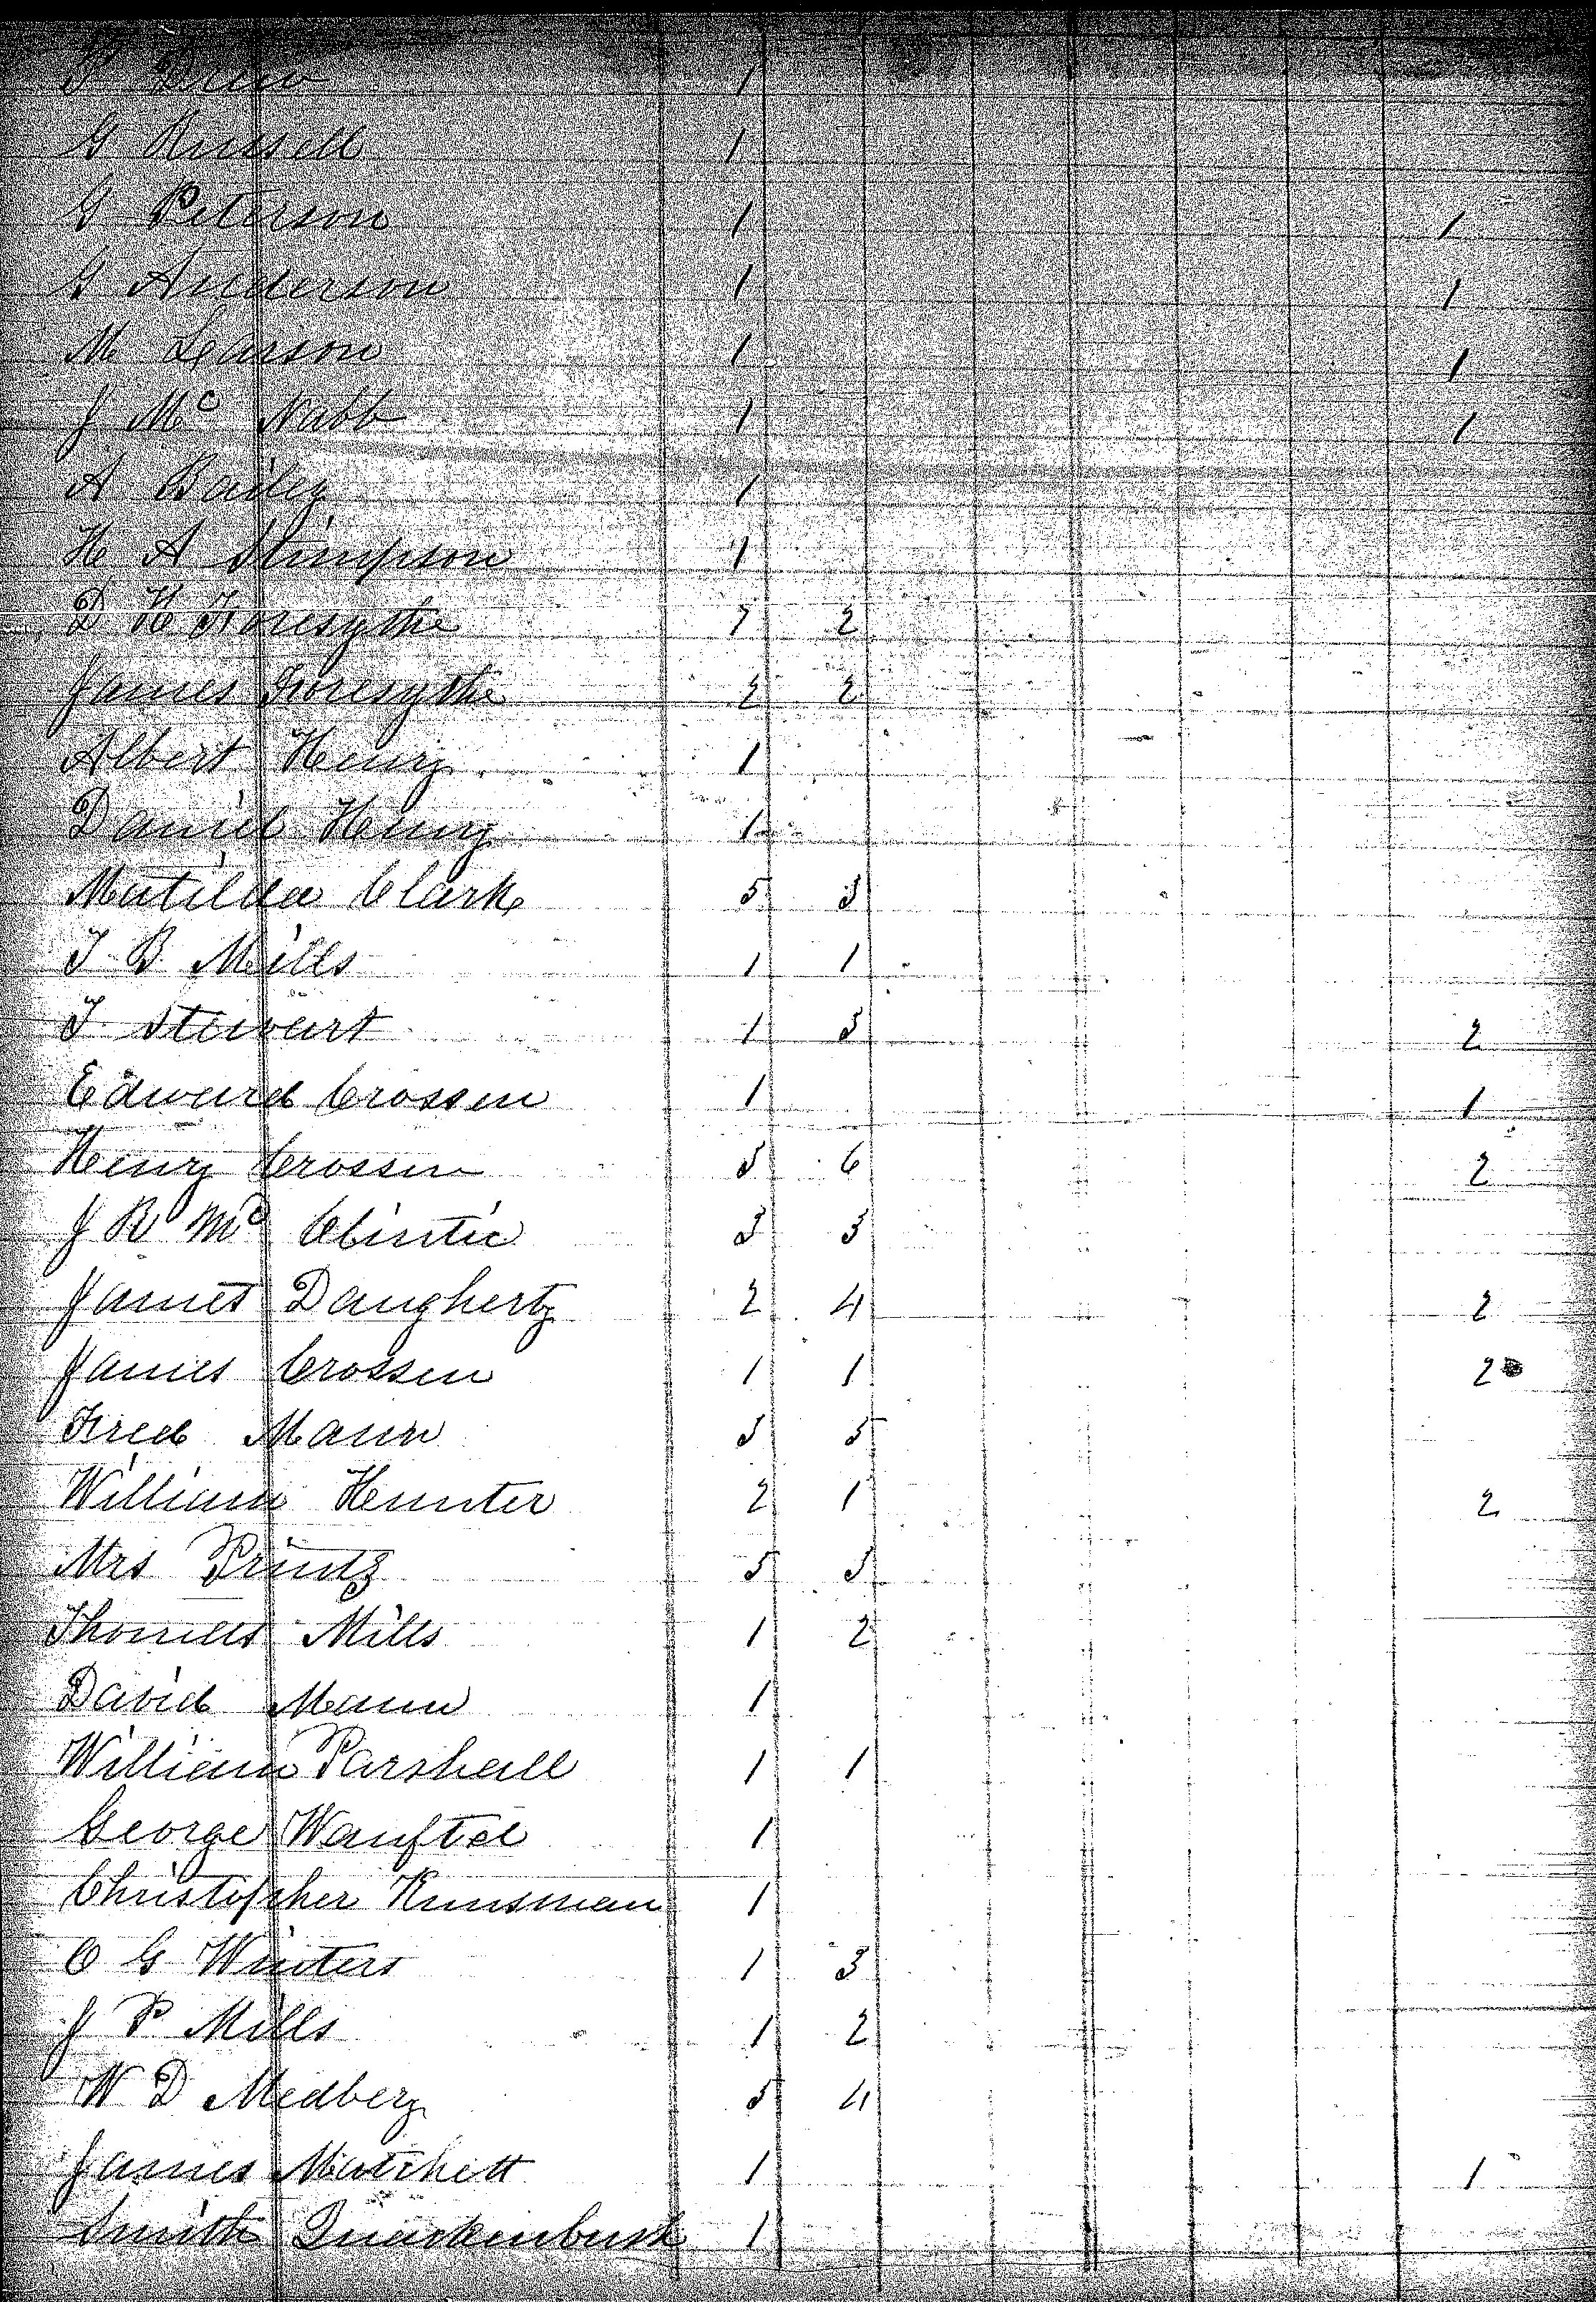 Drew 1
G Russell 1
G Peterson 1 1
G Anderson 1 1
M Larson 1 1
J Mc Nabb 1 1
A Bailey 1
H A Stimpson 1
D H Foresythe 7 2
James Foresythe 2 2
Albert Henry 1
Daniel Henry 1
Matilda Clark 5 3
T B Mills 1 1
T Stewart 1 3 2
Edward Crossen 1 1
Henry Crossen 3 6 2
J R Mc Clintic 3 3
James Daugherty 2 4 2
James Crossen 1 1 2
Fred Mann 3 5
William Hunter 2 1 2
Mrs Printz 5 3
Thomas Mills 1 2
David Mann 1
William Parshall 1 1
George 1
Christopher Kunsman 1
C G Winters 1 3
J P Mills 1 2
W D Medbery 5 4
James Matchett 1 1
Smith Quackenbush 1